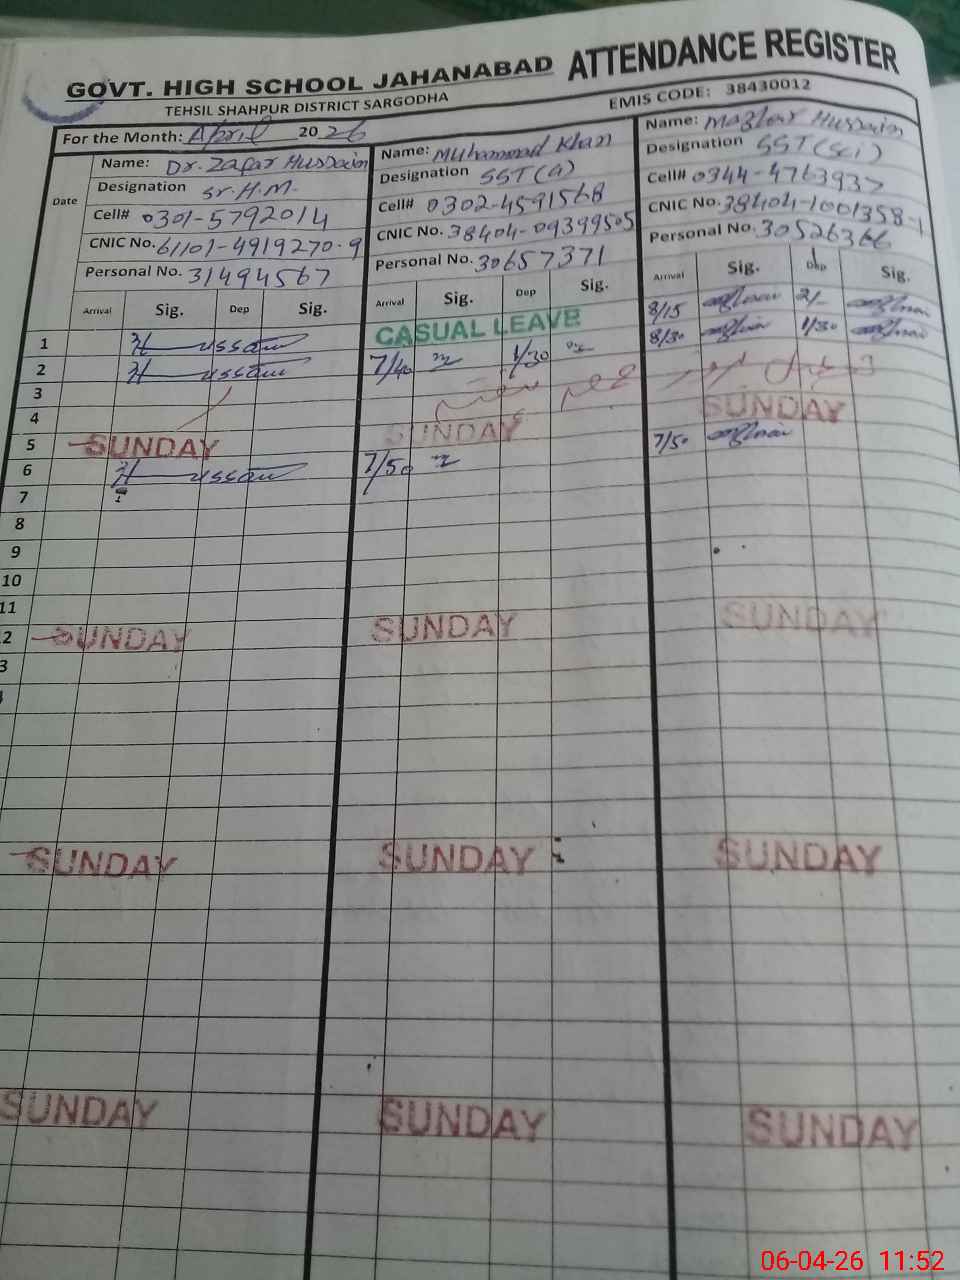 GOVT. HIGH SCHOOL JAHANABAD ATTENDANCE REGISTER
TEHSIL SHAHPUR DISTRICT SARGODHA EMIS CODE: 38430012
For the Month: April 2026
Date
Name: Dr. Zafar Hussain
Designation Sr. H.M.
Cell# 0301-5792014
CNIC No. 61101-4919270-9
Personal No. 31494567
Arrival Sig. Dep Sig.
Name: Muhammad Khan
Designation SST (a)
Cell# 0302-4591568
CNIC No. 38404-09399505
Personal No. 30657371
Arrival Sig. Dep Sig.
Name: Mazhar Hussain
Designation SST (Sci)
Cell# 0344-4763937
CNIC No. 38404-1001358-1
Personal No. 30526366
Arrival Sig. Dep Sig.
1 Hussain CASUAL LEAVE 8/15 2/-
2 Hussain 7/40 1/30 8/30 1/30
3
4
5 SUNDAY SUNDAY SUNDAY
6 Hussain 7/50 7/50
7
8
9
10
11
2 SUNDAY SUNDAY SUNDAY
3
SUNDAY SUNDAY SUNDAY
SUNDAY SUNDAY SUNDAY
06-04-26 11:52